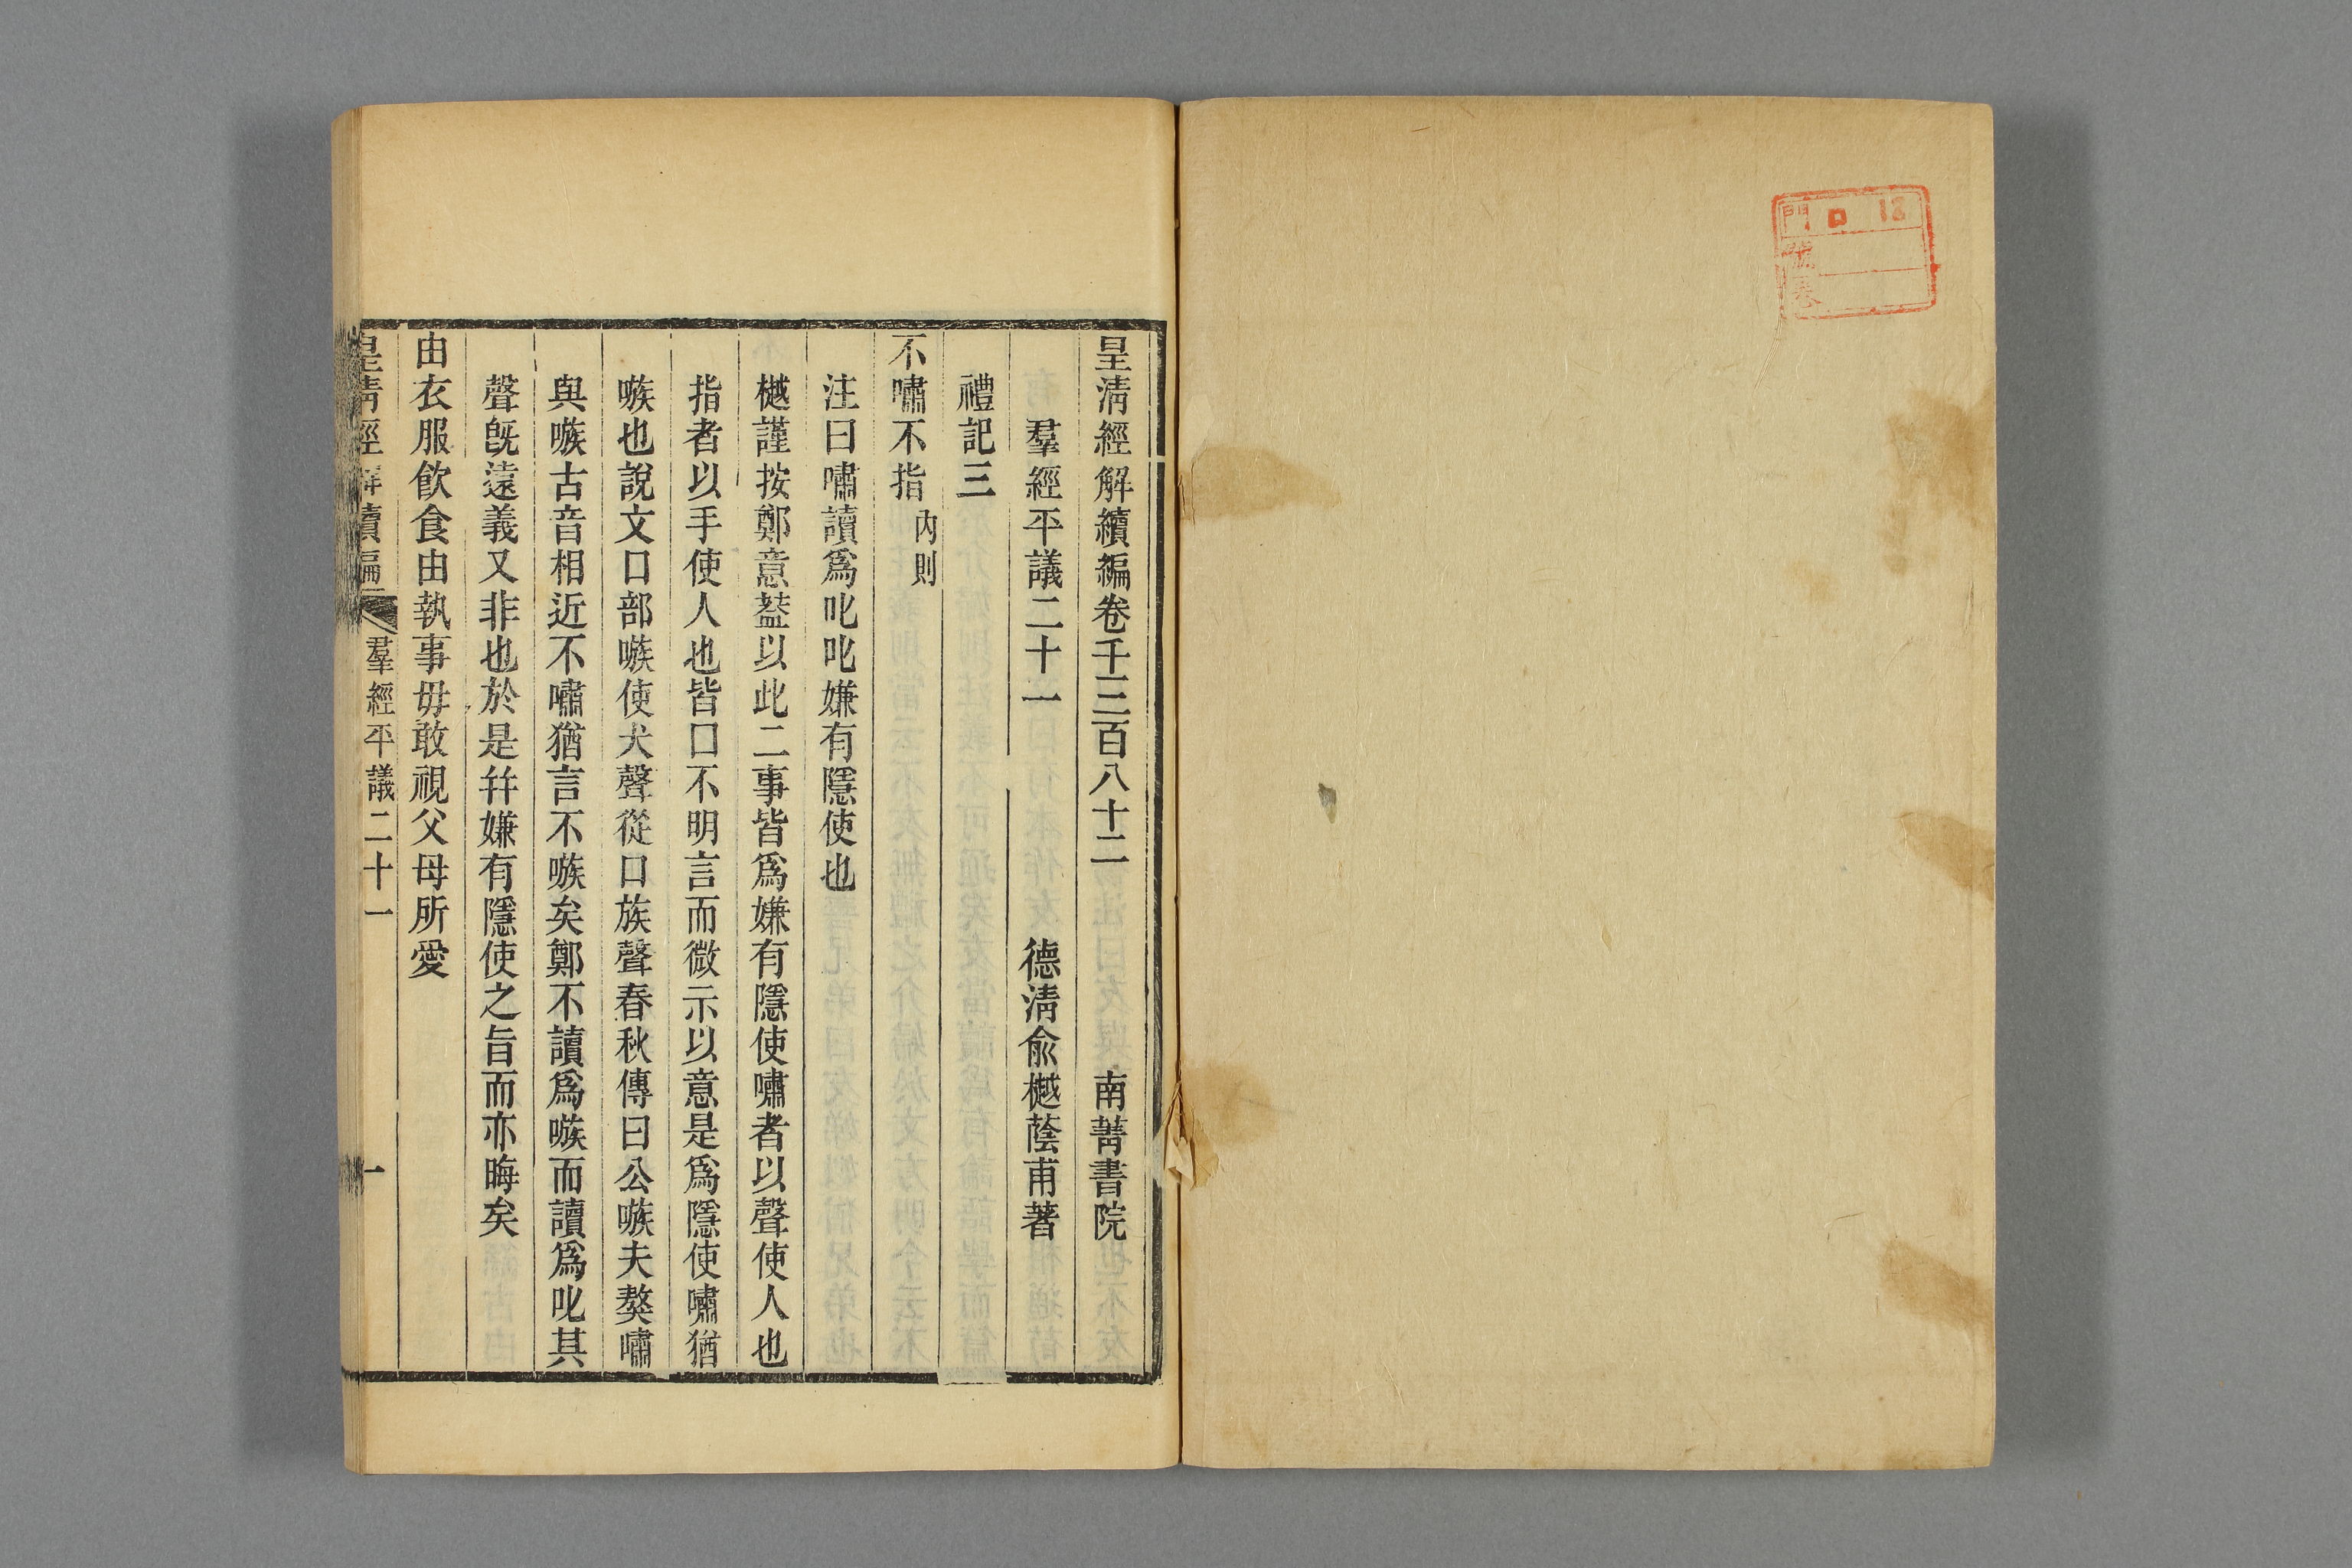 門 口 18
號
卷
皇清經解續編卷千三百八十二 南菁書院
羣經平議二十一 德清俞樾蔭甫著
禮記三
不嘯不指 內則
注曰嘯讀爲叱叱嫌有隱使也
樾謹按鄭意葢以此二事皆爲嫌有隱使嘯者以聲使人也
指者以手使人也皆口不明言而微示以意是爲隱使嘯猶
嗾也說文口部嗾使犬聲從口族聲春秋傳曰公嗾夫獒嘯
與嗾古音相近不嘯猶言不嗾矣鄭不讀爲嗾而讀爲叱其
聲旣遠義又非也於是幷嫌有隱使之旨而亦晦矣
由衣服飮食由執事毋敢視父母所愛
皇清經解續編 羣經平議二十一 一